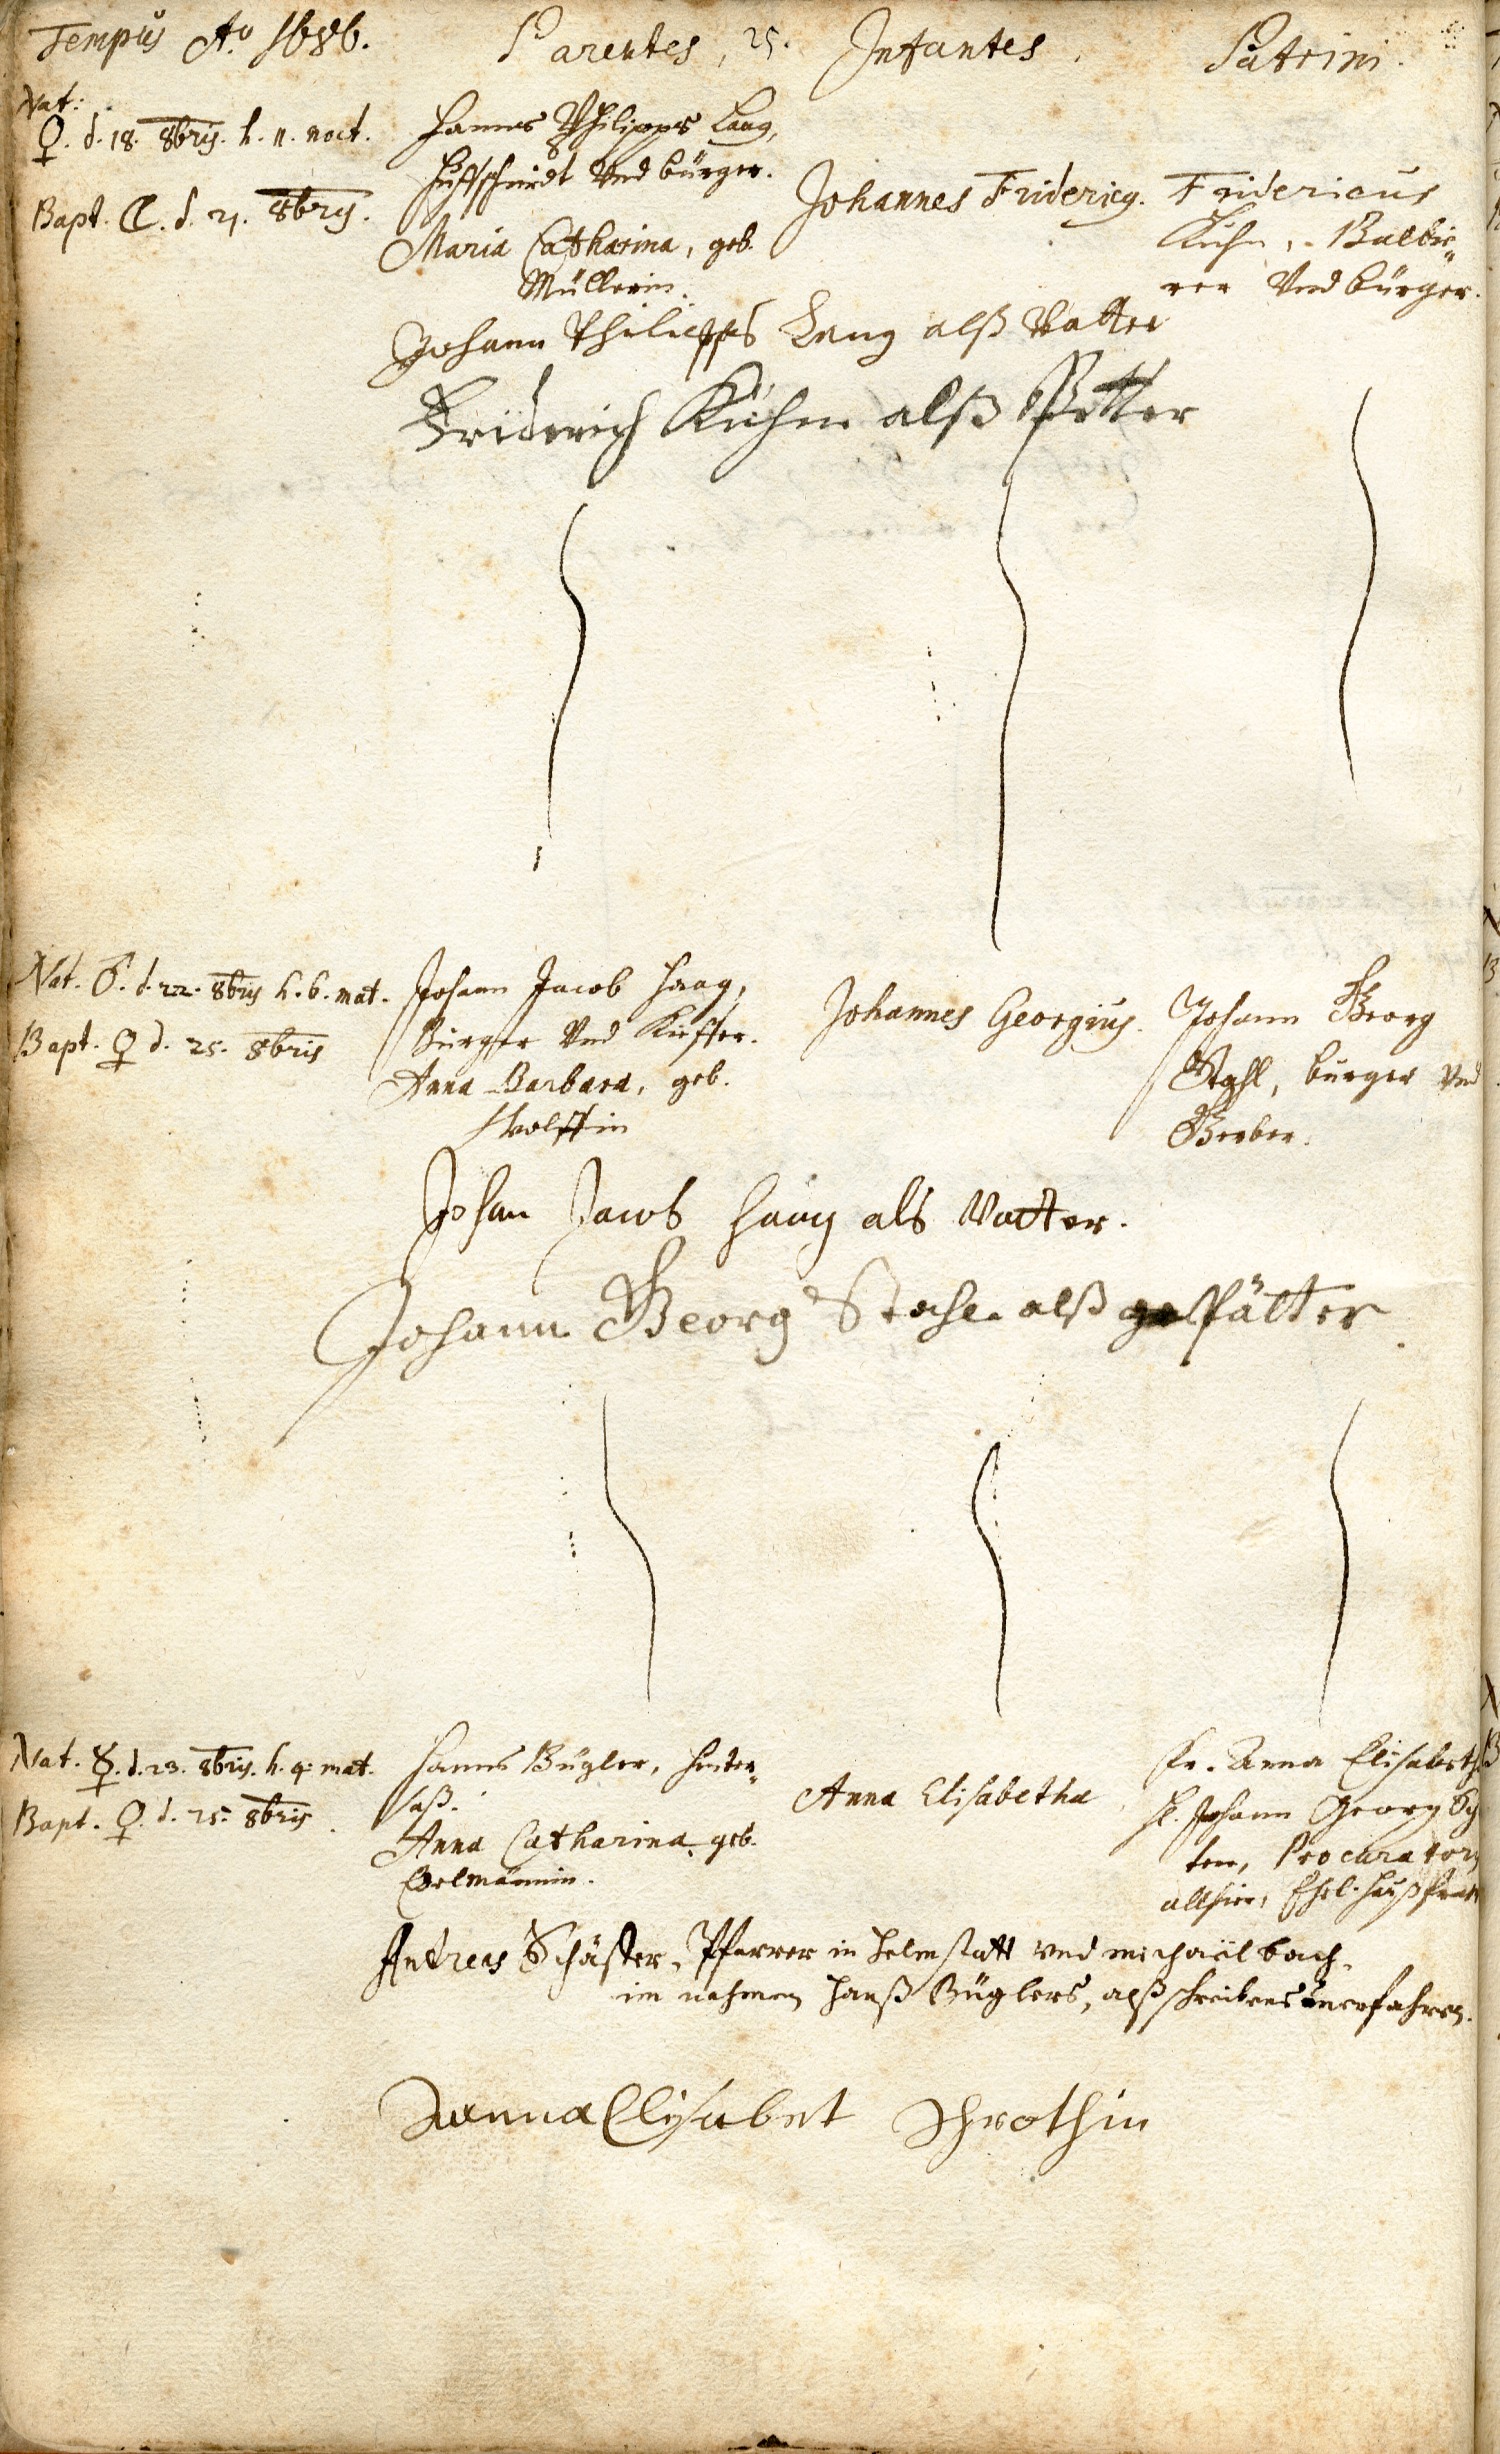 Tempus Ao 1686. Parentes, 25. Infantes. Patrini.
Nat:
♀. d. 18. 8bris. h. 11. noct.
Bapt. ☾. d. 21. 8bris.
Hannes Philipps Lang,
Huffschmidt Vnd bürger.
Maria Catharina, geb.
Müllerin.
Johannes Fridericg.
Fridericus
Kühn, Balbie„
rer Vnd bürger.
Johann Philipps Lang alß Vatter
Friderich Kühn alß Pfetter
Nat. ♂. d. 22. 8bris h. 6. mat.
Bapt. ♀ d. 25. 8bris
Johann Jacob Haag,
Burger Vnd Kieffer.
Anna Barbara, geb.
Wolffin
Johannes Georgius.
Johann Georg
Stahl, burger Vnd
Gerber.
Johan Jacob Haag als Vatter.
Johann Georg Stahl alß gefätter
Nat. ☿. d. 23. 8bris. h. 4. mat.
Bapt. ♀. d. 25. 8bris.
Hanns Bügler, Hinter„
saß.
Anna Catharina, geb.
Anna Elisabetha
Fr. Anna Elisabeth
H. Johann Georg Sch
ten, Procurators
allhier, Ehel. Haußfraw
Andreas Schäffer, Pfarrer in Helmstatt vnd michaëlbach,
im nahmen Hanß Büglers, alß schreibens unerfahren.
Anna Elisabet Schrothin